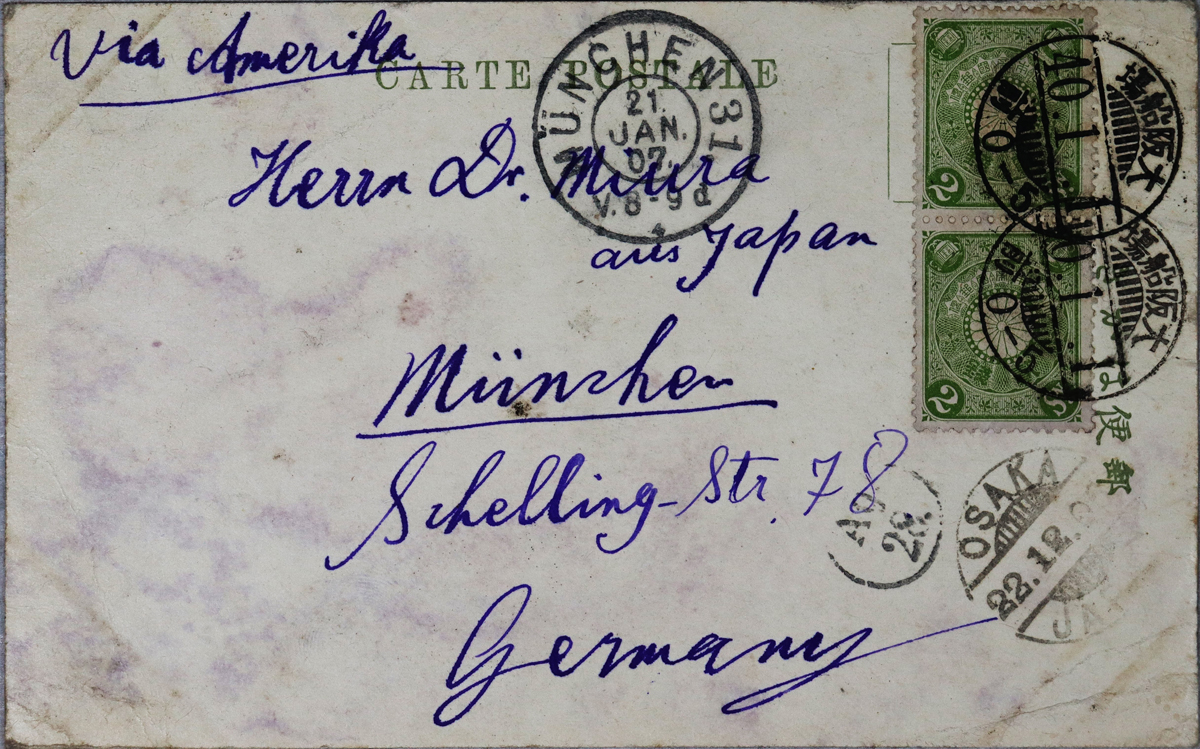 Via Amerika
CARTE POSTALE
MÜNCHEN 31
21.
JAN.
07.
V.8-9d
Herrn Dr. Miura
aus Japan
München
Schelling-Str. 78
Germany
2
2
40.1.1
大阪船場
大阪船場
郵便は
28.
OSAKA
22.12.0